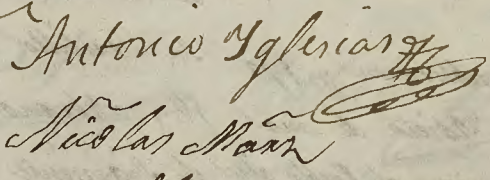 Antonico Yglesias
Nicolas Mãrz